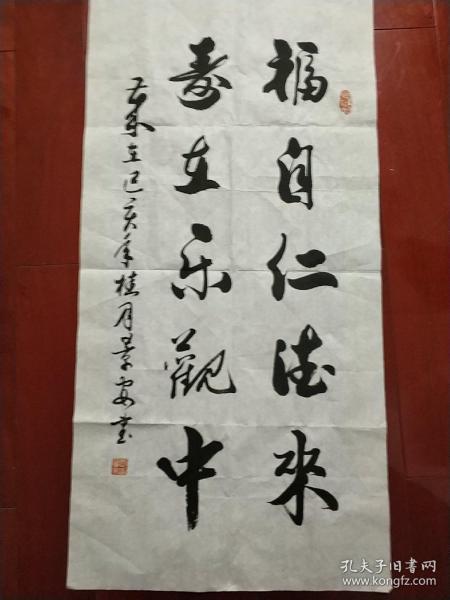 福自仁德來
寿在乐觀中
岁在己亥年桂月景安书
孔夫子旧书网
www.kongfz.com